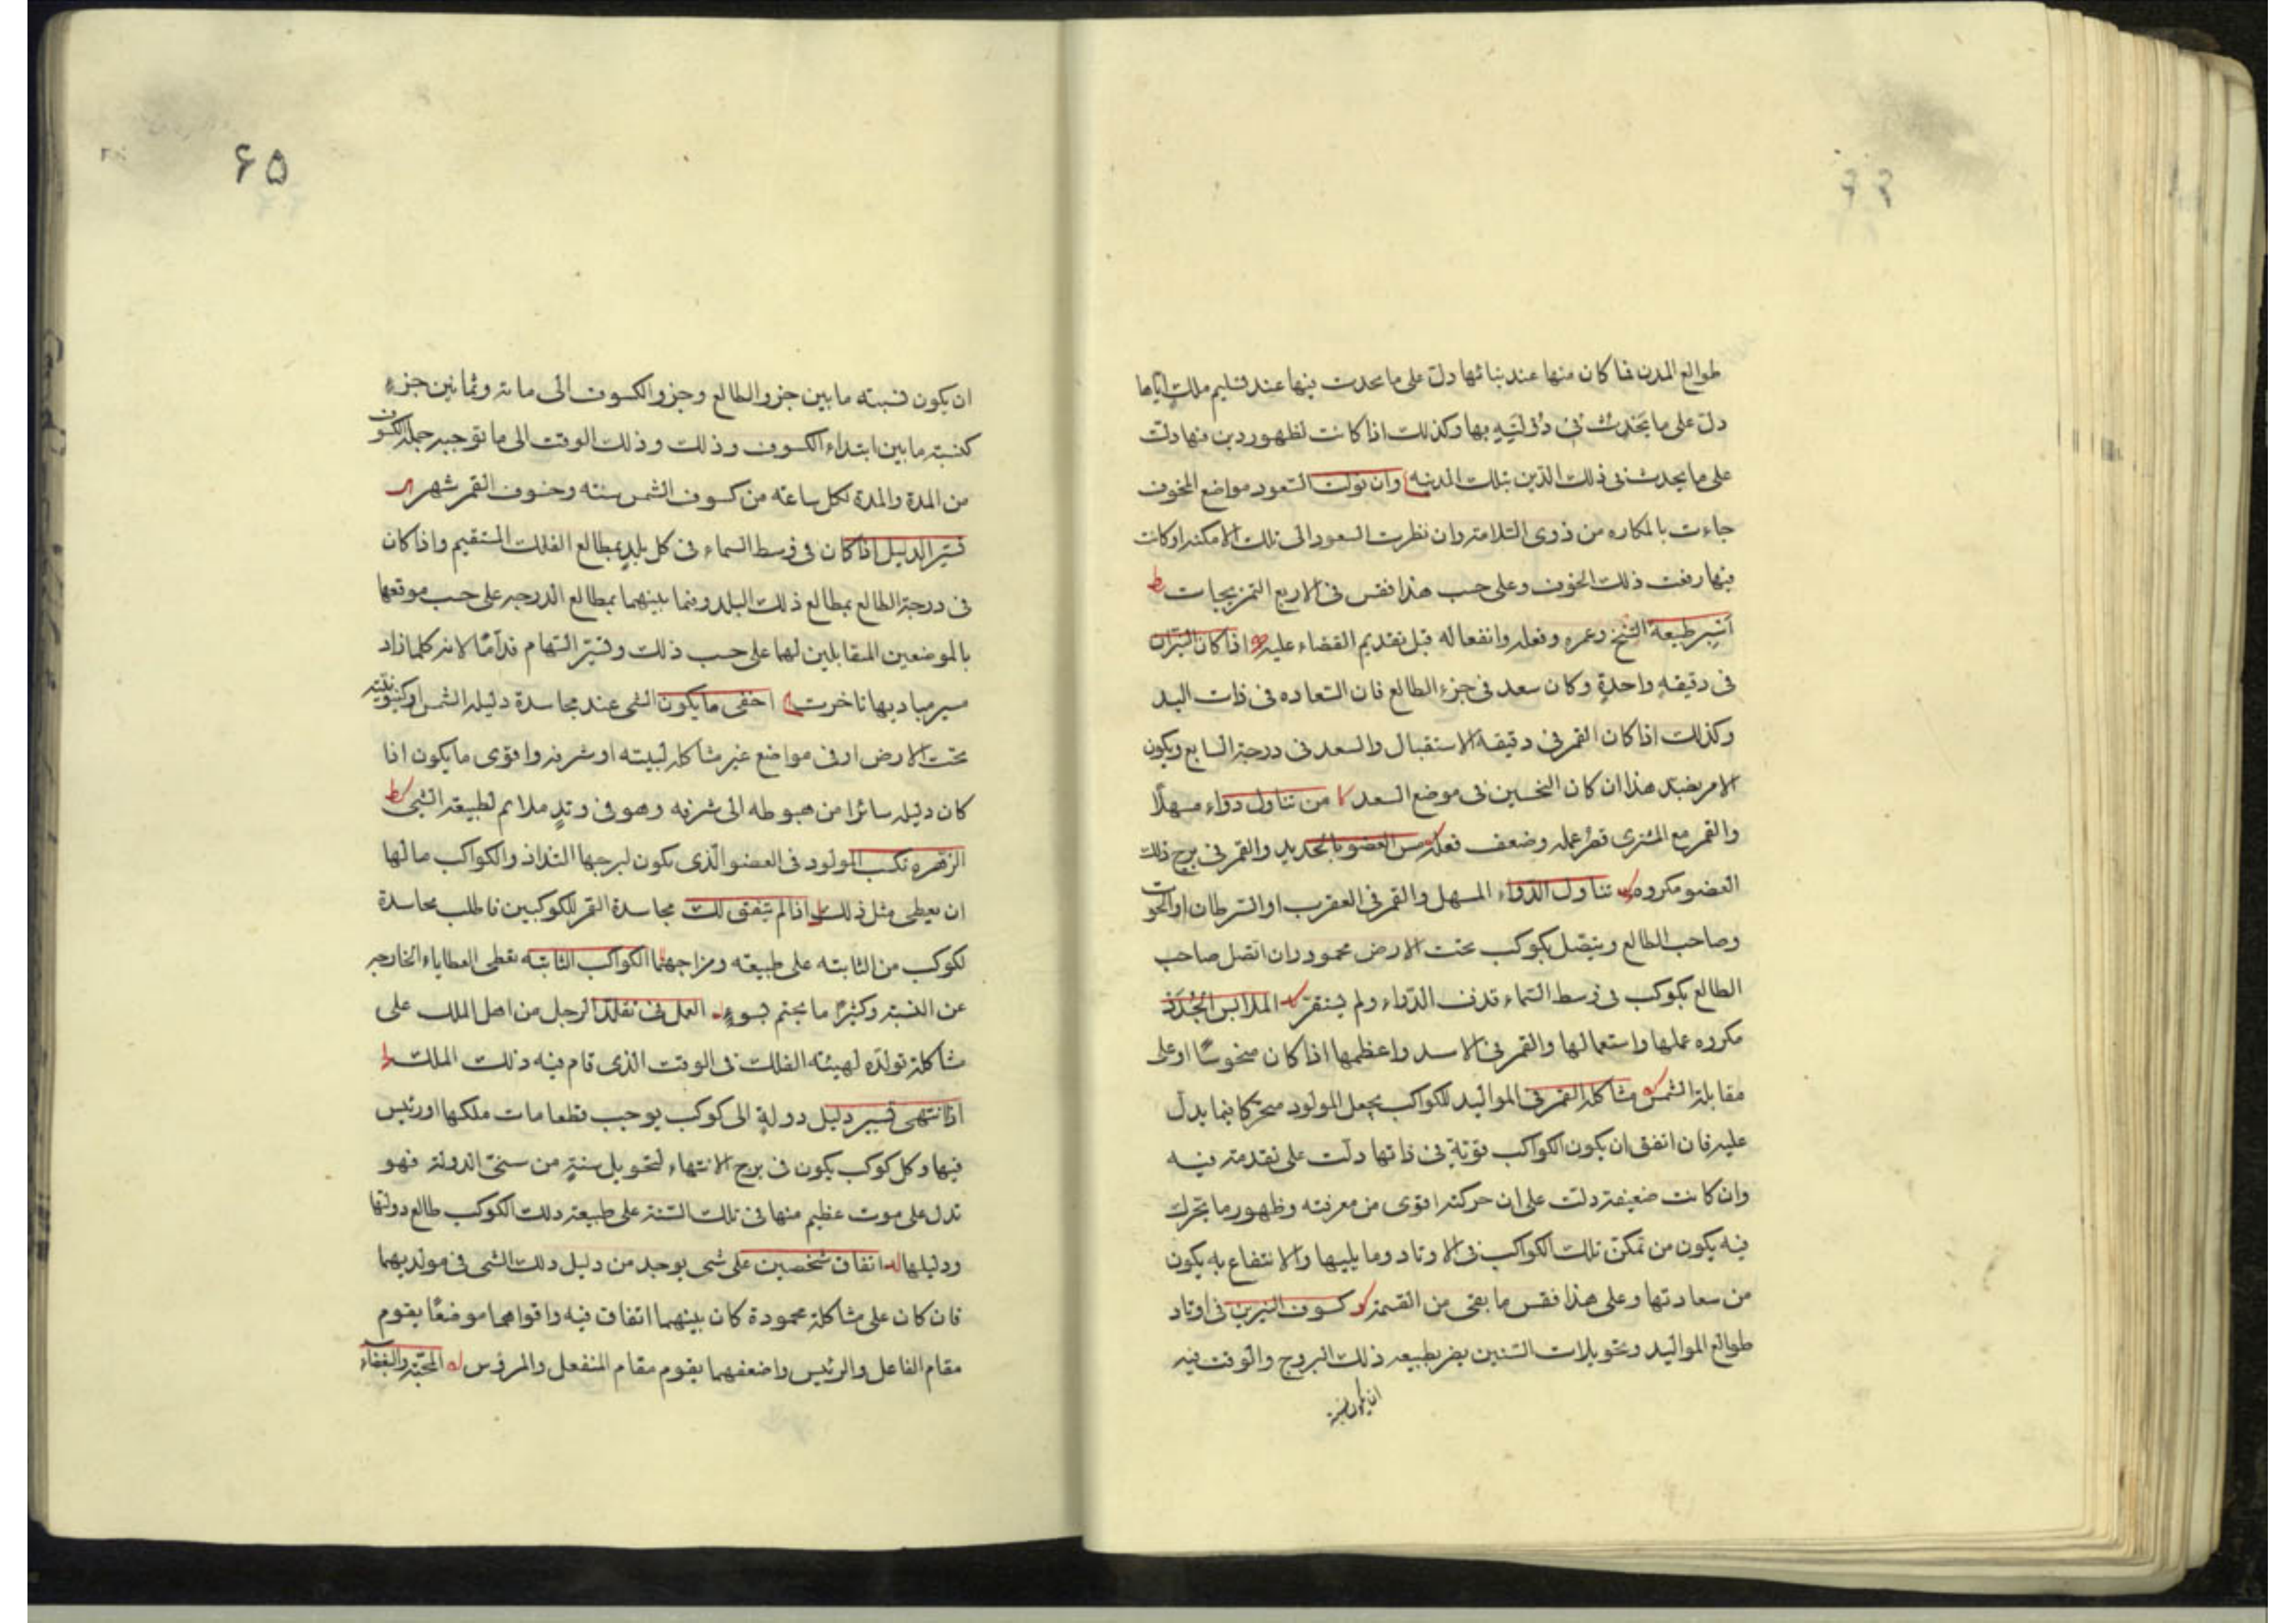 طوالع المدن فما كان منها عند بنائها دل على ما يحدث فيها عند تسليم ملك اياها
دل على ما يحدث فى دولته بها وكذلك اذا كانت لظهور دين فيها دلت
على ما يحدث فى ذلك الدين بتلك المدينه وان تولت السعود مواضع الخوف
جاءت بالمكاره من ذوى السلامة وان نظرت السعود الى تلك الامكنه او كانت
فيها رفعت ذلك الخوف وعلى حسب هذا فقس فى الاربع التمزيجات يط
انسب طبيعة الشيخ وعمره وفعله وانفعاله قبل تقديم القضاء عليه اذا كان النيران
فى دقيقه واحدة وكان سعد فى جزء الطالع فان السعاده فى ذات اليد
وكذلك اذا كان القمر فى دقيقة الاستقبال والسعد فى درجة السابع ويكون
الامر بضد هذا ان كان النحسين فى موضع السعد كا من تناول دواء مسهلًا
والقمر مع المشترى قصر عمله وضعف فعله مس العضو بالحديد والقمر فى برج ذلك
العضو مكروه تناول الدواء المسهل والقمر فى العقرب او السرطان او الحوت
وصاحب الطالع ويتصل بكوكب تحت الارض محمود وان اتصل صاحب
الطالع بكوكب فى وسط السماء قذف الدواء ولم يستقر كد الملابس الجدد
مكروه عملها واستعمالها والقمر فى الاسد واعظمها اذا كان منحوسًا او على
مقابلة الشمس كه مشاكلة القمر فى المواليد للكواكب يجعل المولود متحركا فيما يدل
عليه فان اتفق ان يكون الكواكب قوية فى ذاتها دلت على تقدمة فيه
وان كانت ضعيفة دلت على ان حركته اقوى من معرفته وظهور ما يتحرك
فيه يكون من تمكن تلك الكواكب فى الاوتاد وما يليها والانتفاع به يكون
من سعادتها وعلى هذا فقس ما بقى من القسمة كو كسوف النيرين فى اوتاد
طوالع المواليد وتحويلات السنين يضر بطبيعه ذلك البروج والوقت فيه
ان يكون نسبة
۶۵
ان يكون نسبته ما بين جزو الطالع وجزو الكسوف الى مائة وثمانين جزء
كنسبة ما بين ابتداء الكسوف وذلك وذلك الوقت الى ما توجبه جملة الكسوف
من المدة والمدة لكل ساعته من كسوف الشمس سنته وخسوف القمر شهر كز
تسير الدليل اذا كان فى وسط السماء فى كل بلد بمطالع الفلك المستقيم واذا كان
فى درجة الطالع بمطالع ذلك البلد وفيما بينهما بمطالع الدرجه على حسب موقعها
بالموضعين المتقابلين لهما على حسب ذلك وتسير السهام قدامًا لانه كلما ازاد
مسير مباديها تاخرت كح اخفى ما يكون الشى عند مجاسدة دليله الشمس او كينونيته
تحت الارض او فى مواضع غير مشاكلة لبيته او شرفه واقوى ما يكون اذا
كان دليله سائرا من هبوطه الى شرفه وهو فى وتد ملائم لطبيعة الشى كط
الزهره تكسب المولود فى العضو الذى يكون لبرجها التذاذ والكواكب ما لها
ان يعطى مثل ذلك ل اذا لم يتفق لك مجاسدة القمر للكوكبين فاطلب مجاسدة
لكوكب من الثابته على طبيعته ومزاجهما لا الكواكب الثابته تعطى العطاياء الخارجه
عن النسبة وكثيرًا ما يختم بسوء لب العمل فى تقلد الرجل من اهل الملك على
مشاكلة تولده لهيئه الفلك فى الوقت الذى قام فيه ذلك الملك
اذا انتهى تسيير دليل دولة الى كوكب يوجب قطعا مات ملكها او رئيس
فيها وكل كوكب يكون فى برج الانتهاء لتحويل سنة من سنى الدولة فهو
تدل على موت عظيم منها فى تلك السنة على طبيعة ذلك الكوكب طالع دولتها
ودليلها لد اتفاق شخصين على شى يوجد من دليل ذلك الشى فى مولديهما
فان كان على مشاكلة محمودة كان بينهما اتفاق فيه واقواهما موضعًا يقوم
مقام الفاعل والرئيس واضعفهما يقوم مقام المنفعل والمرؤس له المحبة والبغضاء